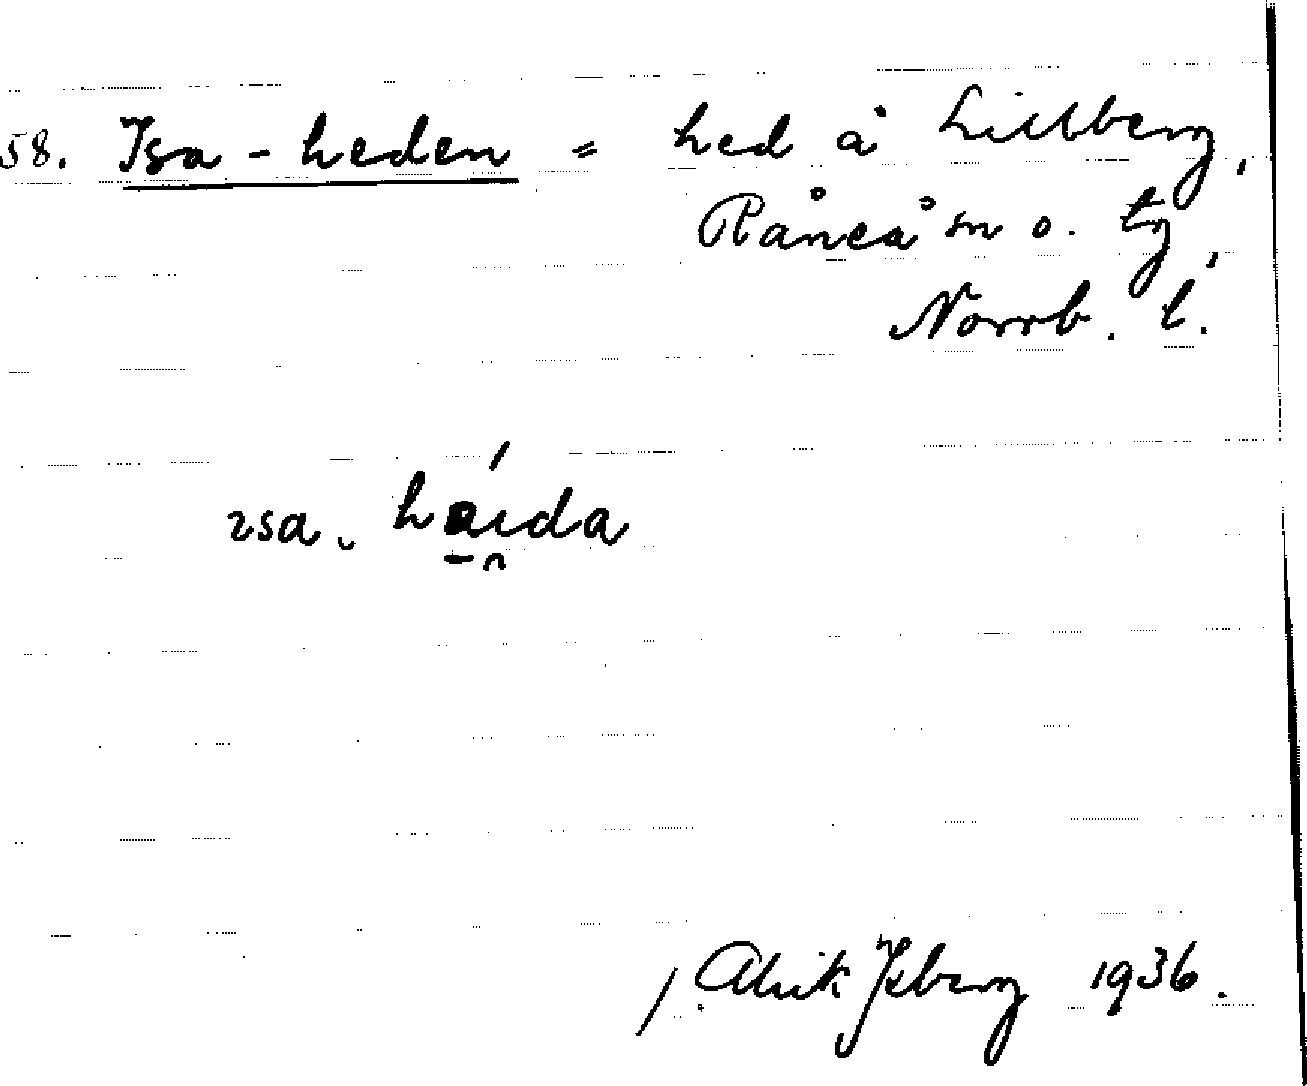 58. Isa-heden = hed å Lillberg,
Råneå sn o. tg,
Norrb. l.
ısa. háıda
/ Alrik Isberg 1936.